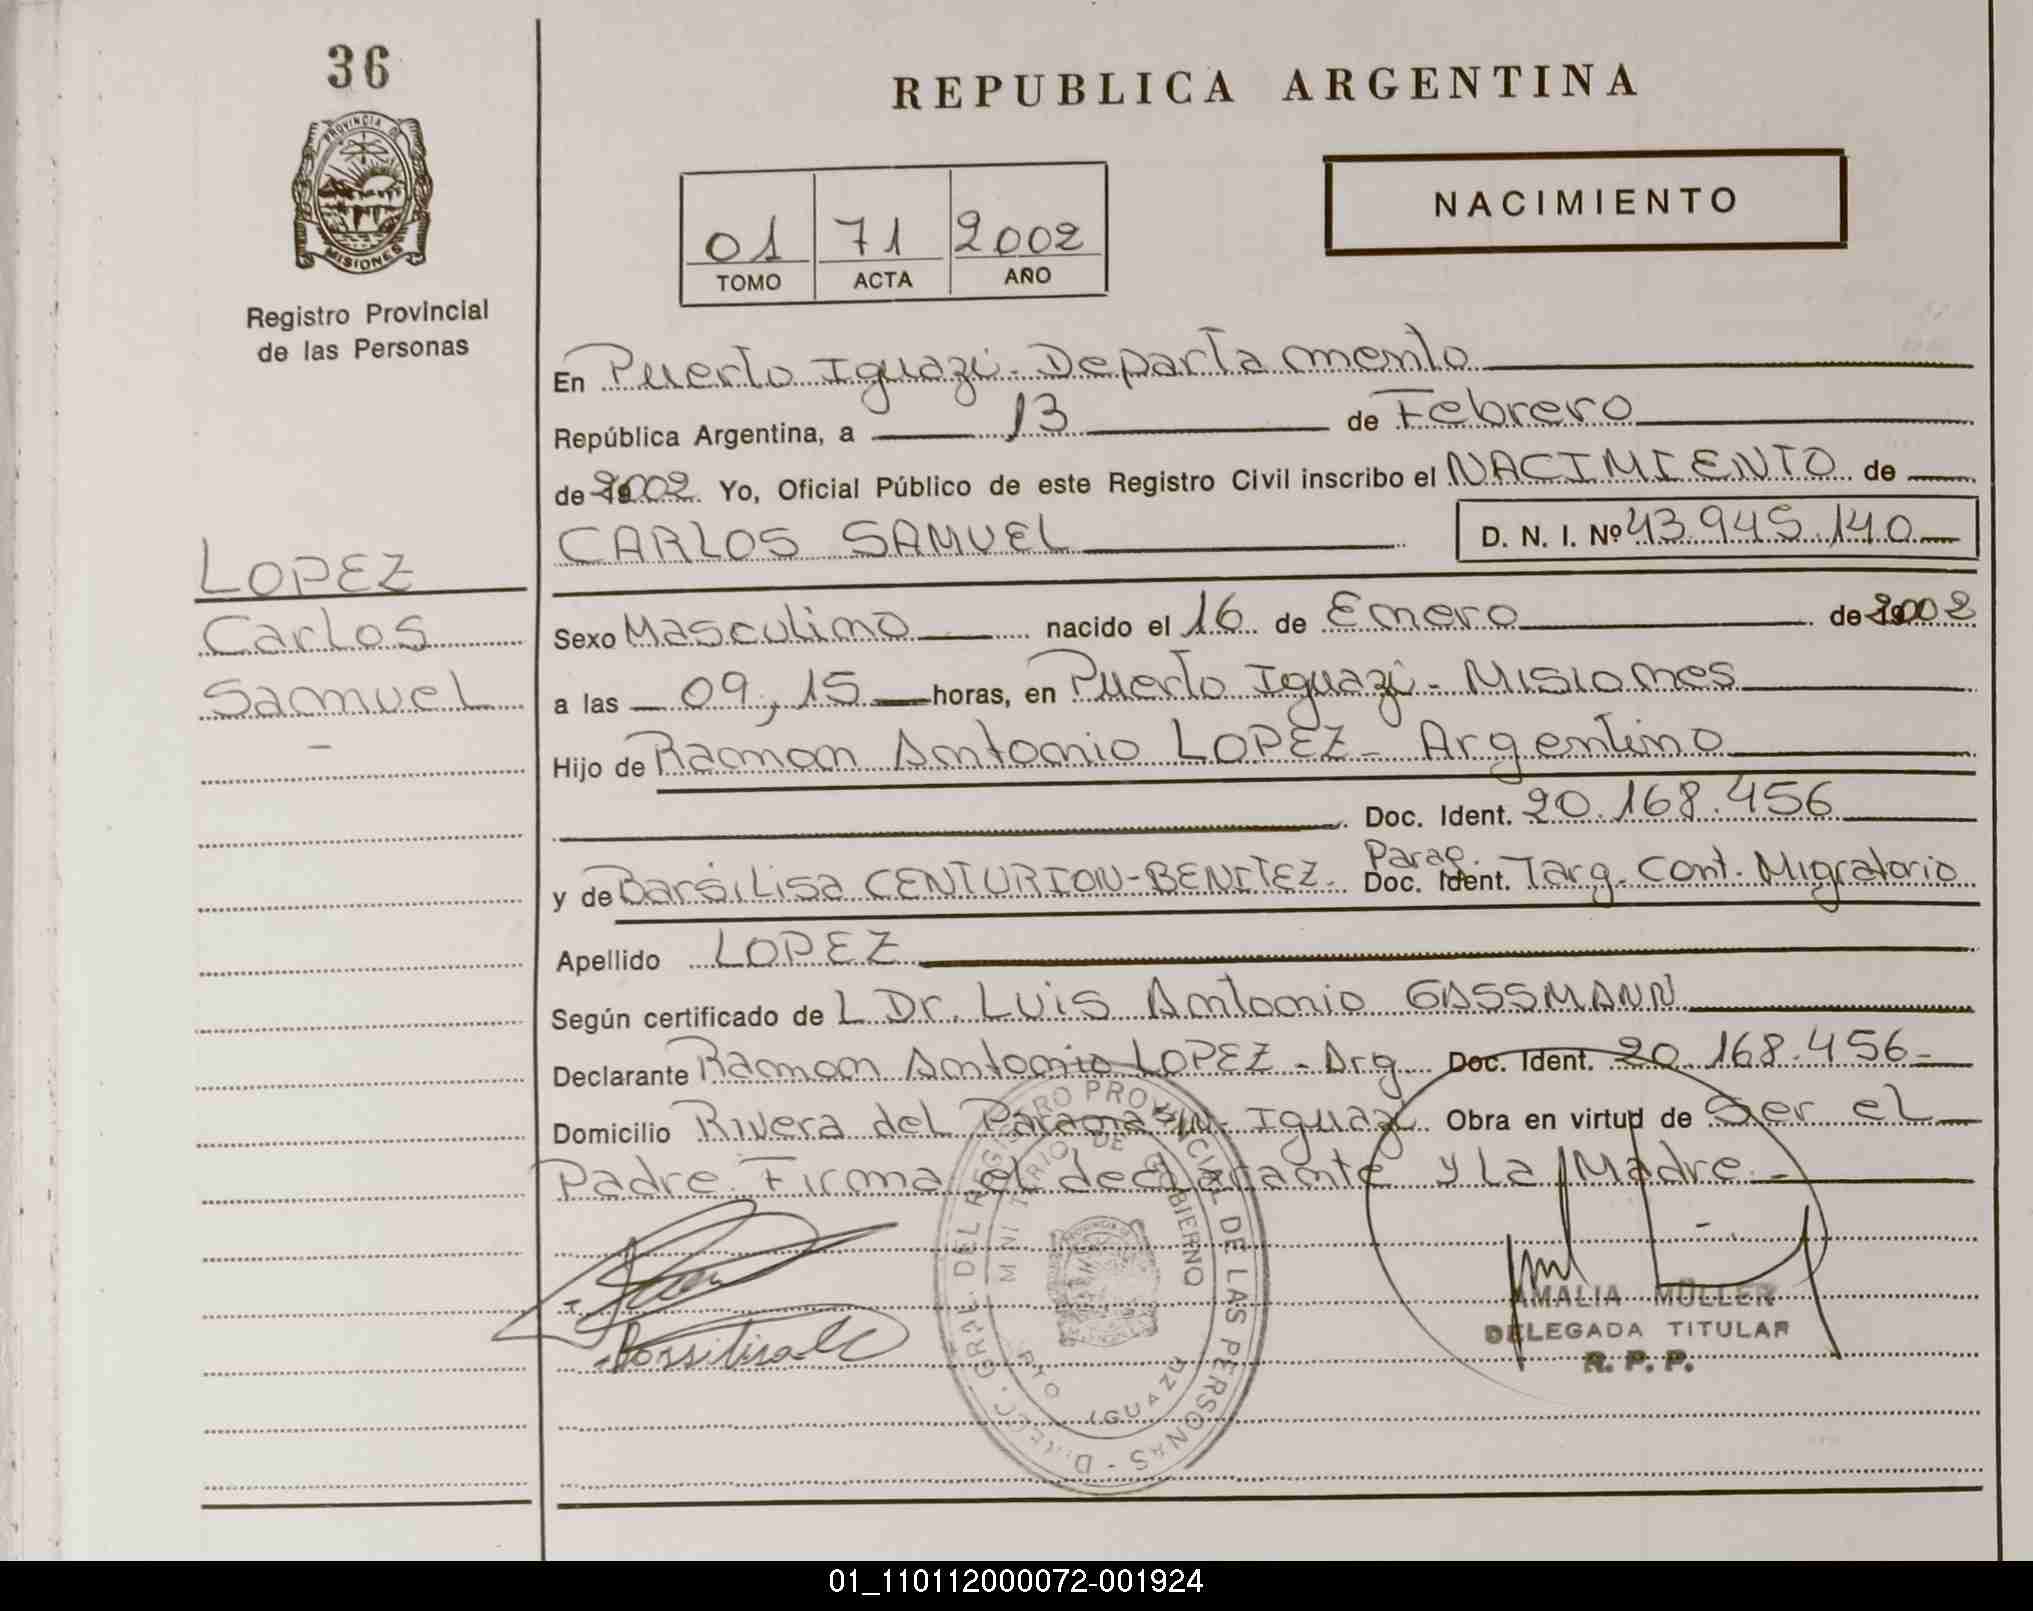 36
PROVINCIA DE
MISIONES
Registro Provincial
de las Personas
LOPEZ
Carlos
Samuel
REPUBLICA ARGENTINA
NACIMIENTO
01 71 2002
TOMO ACTA AÑO
En Puerto Iguazú - Departamento
República Argentina, a 13 de Febrero
de 2002 Yo, Oficial Público de este Registro Civil inscribo el NACIMIENTO de
CARLOS SAMUEL D. N. I. Nº 43.945.140
Sexo Masculino nacido el 16 de Enero de 2002
a las 09,15 horas, en Puerto Iguazú - Misiones
Hijo de Ramon Antonio LOPEZ - Argentino
Doc. Ident. 20.168.456
Parag.
y de Barsilisa CENTURION-BENITEZ. Doc. Ident. Targ. Cont. Migratorio
Apellido LOPEZ
Según certificado de L Dr. Luis Antonio GASSMANN
Declarante Ramon Antonio LOPEZ - Arg Doc. Ident. 20.168.456-
Domicilio Rivera del Parana S/N- Iguazú Obra en virtud de Ser el
Padre. Firma el declarante y La Madre.-
DIRECC. GRAL. DEL REGISTRO PROVINCIAL DE LAS PERSONAS
MINISTERIO DE GOBIERNO
PTO IGUAZU
AMALIA MÜLLER
DELEGADA TITULAR
R. P. P.
01_110112000072-001924